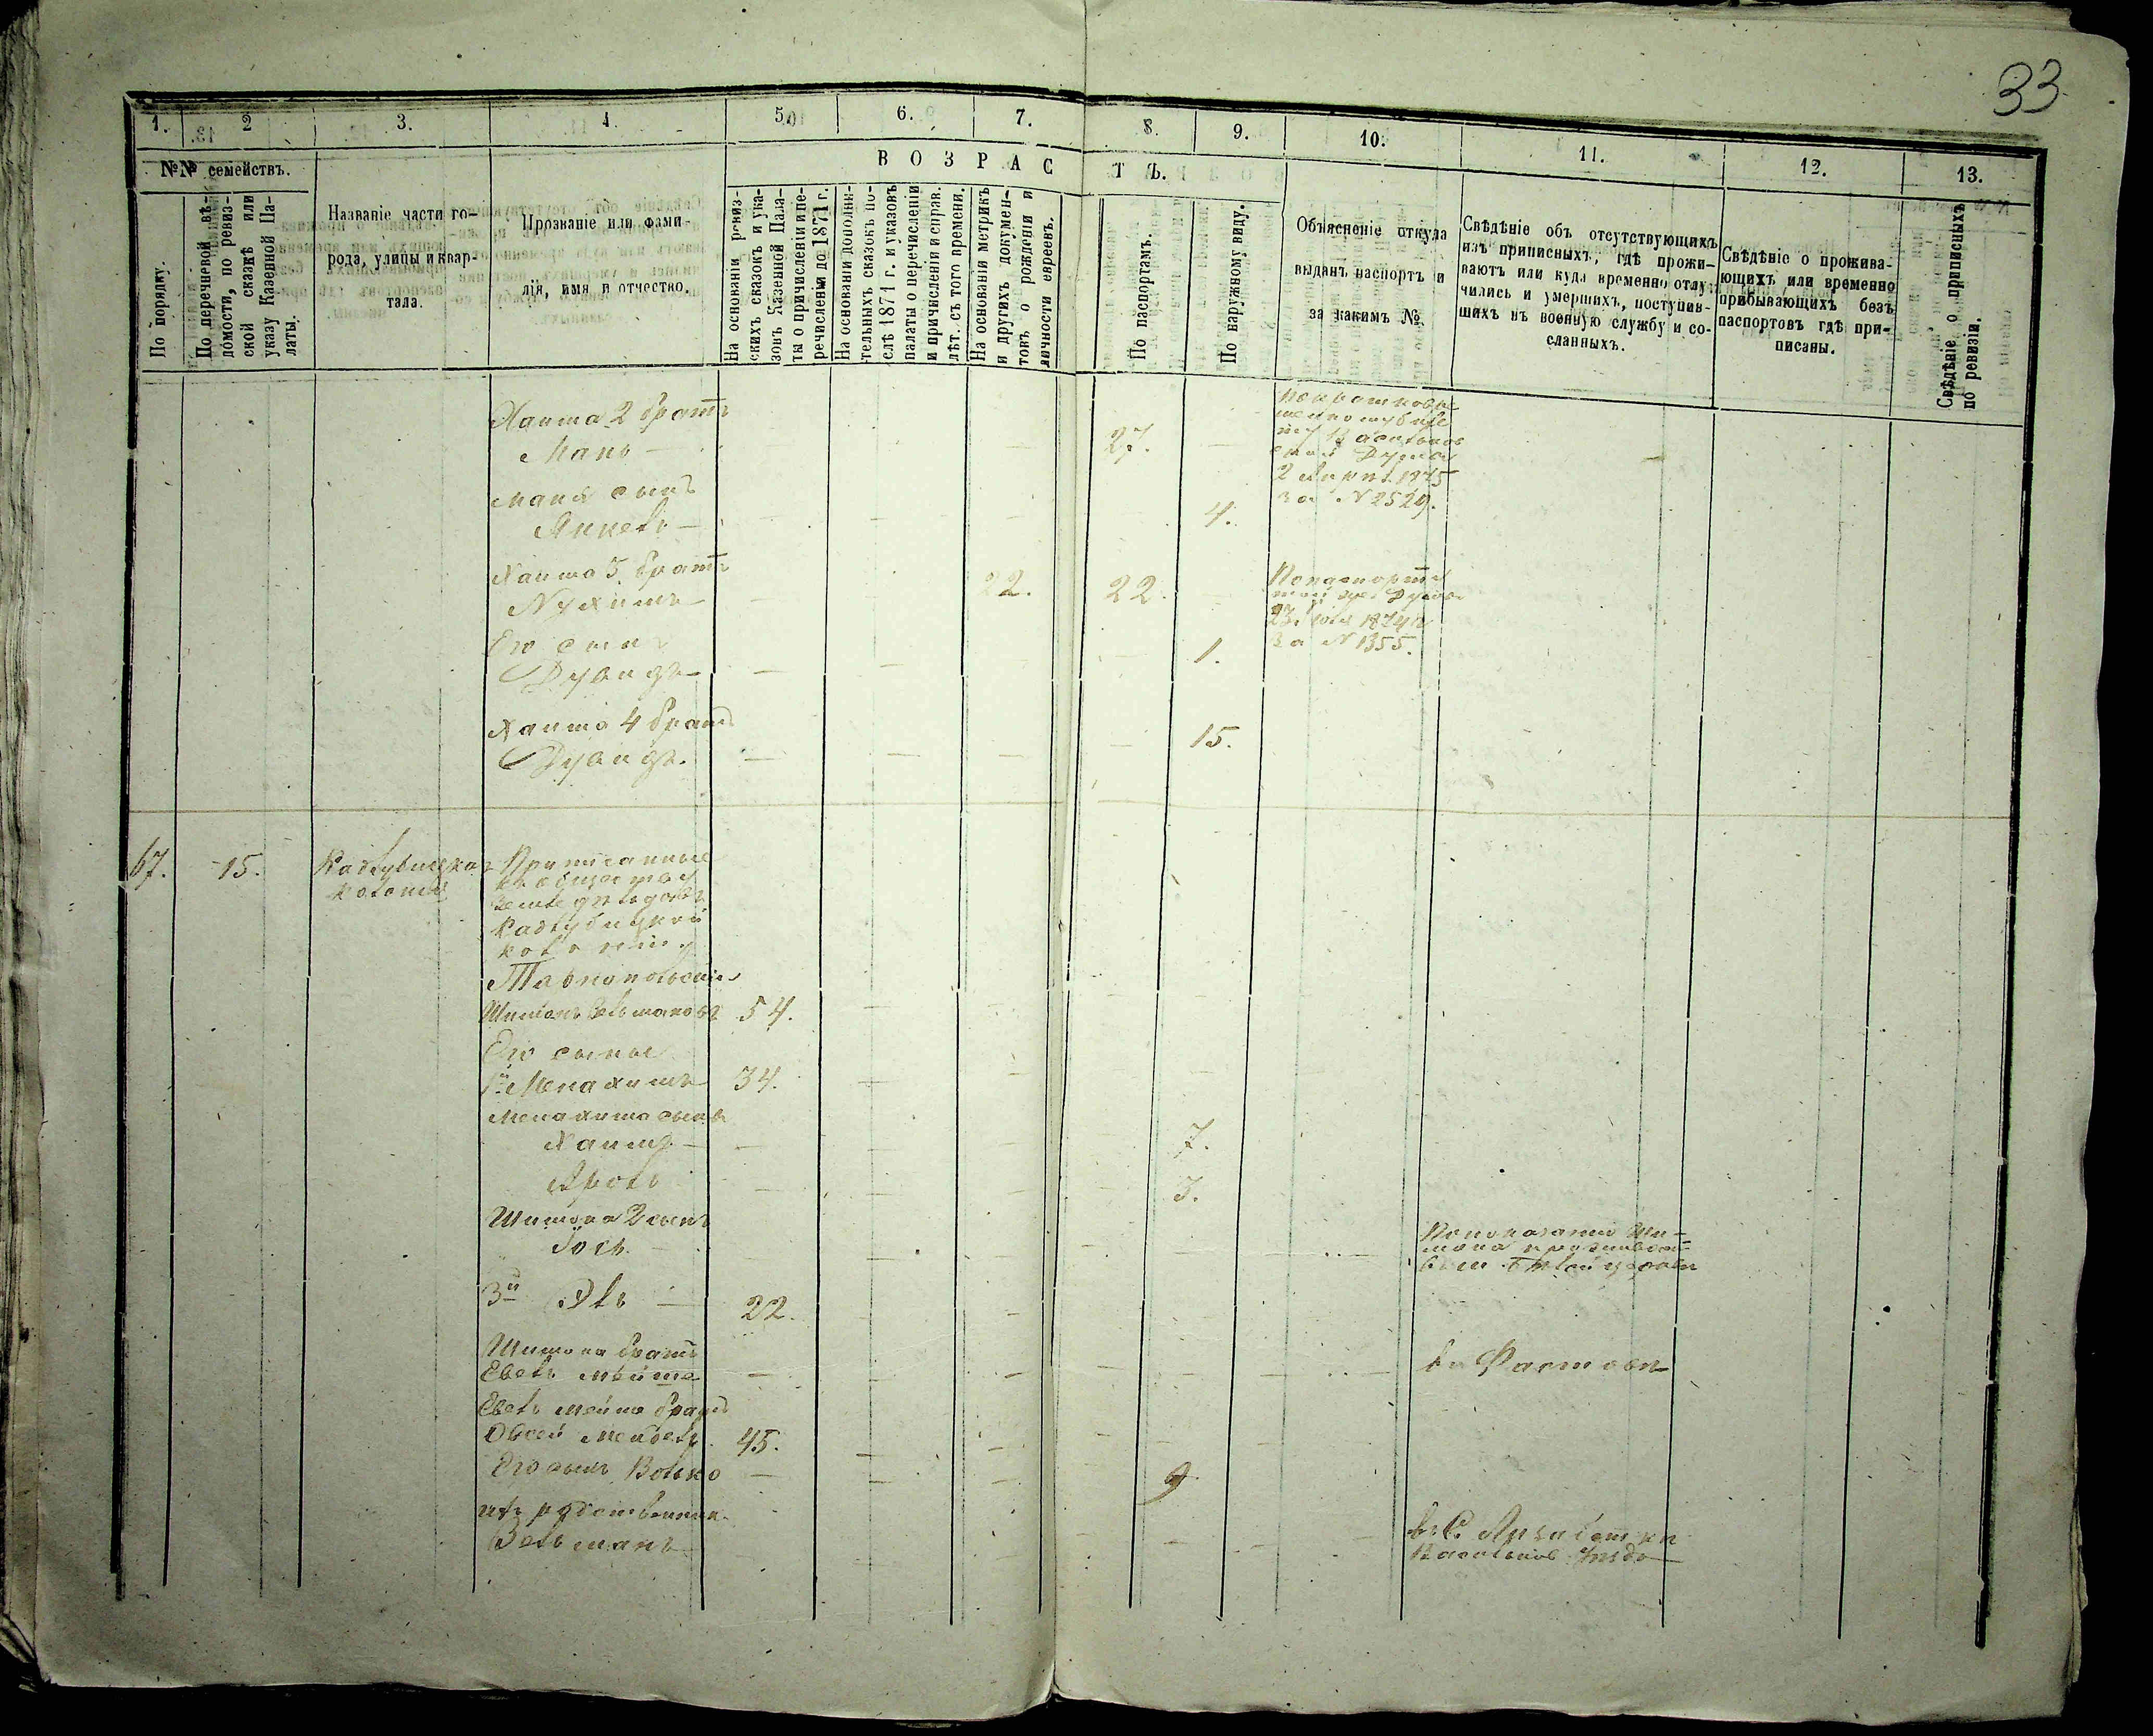 33
1. 2 3. 4. 5. 6. 7. 8. 9. 10. 11. 12. 13.
№№ семействъ.
По порядку.
По перечневой вѣ-
домости, по ревиз-
ской сказкѣ или
указу Казенной Па-
латы.
Названіе части го-
рода, улицы и квар-
тала.
Прозваніе или фами-
лія, имя и отчество.
ВОЗРАСТЪ.
На основаніи ревиз-
скихъ сказокъ и ука-
зовъ Казенной Пала-
ты о причисленіи и пе-
речисленіи до 1871 г.
На основаніи дополни-
тельныхъ сказокъ по-
слѣ 1871 г. и указовъ
палаты о перечисленіи
и причисленіи и справ.
лѣт. съ того времени.
На основаніи метрикъ
и другихъ докумен-
товъ о рожденіи и
личности евреевъ.
По паспортамъ.
По наружному виду.
Объясненіе откуда
выданъ паспортъ и
за какимъ №.
Свѣдѣніе объ отсутствующихъ
изъ приписныхъ, гдѣ прожи-
ваютъ или куда временно отлу-
чились и умершихъ, поступив-
шихъ въ военную службу и со-
сланныхъ.
Свѣдѣніе о прожива-
ющихъ или временно
прибывающихъ безъ
паспортовъ гдѣ при-
писаны.
Свѣдѣніе о приписныхъ
по ревизіи.
Хаима 2 братъ
Мань — 27.
2 1875
за № 2529.
Маня сынъ
Янкель — 4.
Хаима 3. братъ
Нухимъ 22. 22
1874 г
За № 1355.
Его сынъ
Дувидъ 1.
Хаима 4 братъ
Дувидъ. 15.
67. 15. Кадлубицкая
колонія
Приписанные
къ обществу
земледѣльцовъ
Кадлубицкой
колоніи
Тарнопольскій
Шимонъ Зельмановъ 54.
Его сыны
1й Менахимъ 34.
Менахима сынъ
Хаимъ 7.
Сроль 3.
Шимона 2 сынъ
Іось.
По показанію Ши-
мона проживаетъ
въ м. Бѣлой церкви
3й Эль — 22.
Шимона братъ
Евель Мейше въ Фастовѣ
Евель Мейше братъ
Овсей Мендель 45.
Его сынъ Волько 9
ихъ родственник
Зельманъ
въ С.
Васильков. уѣзда